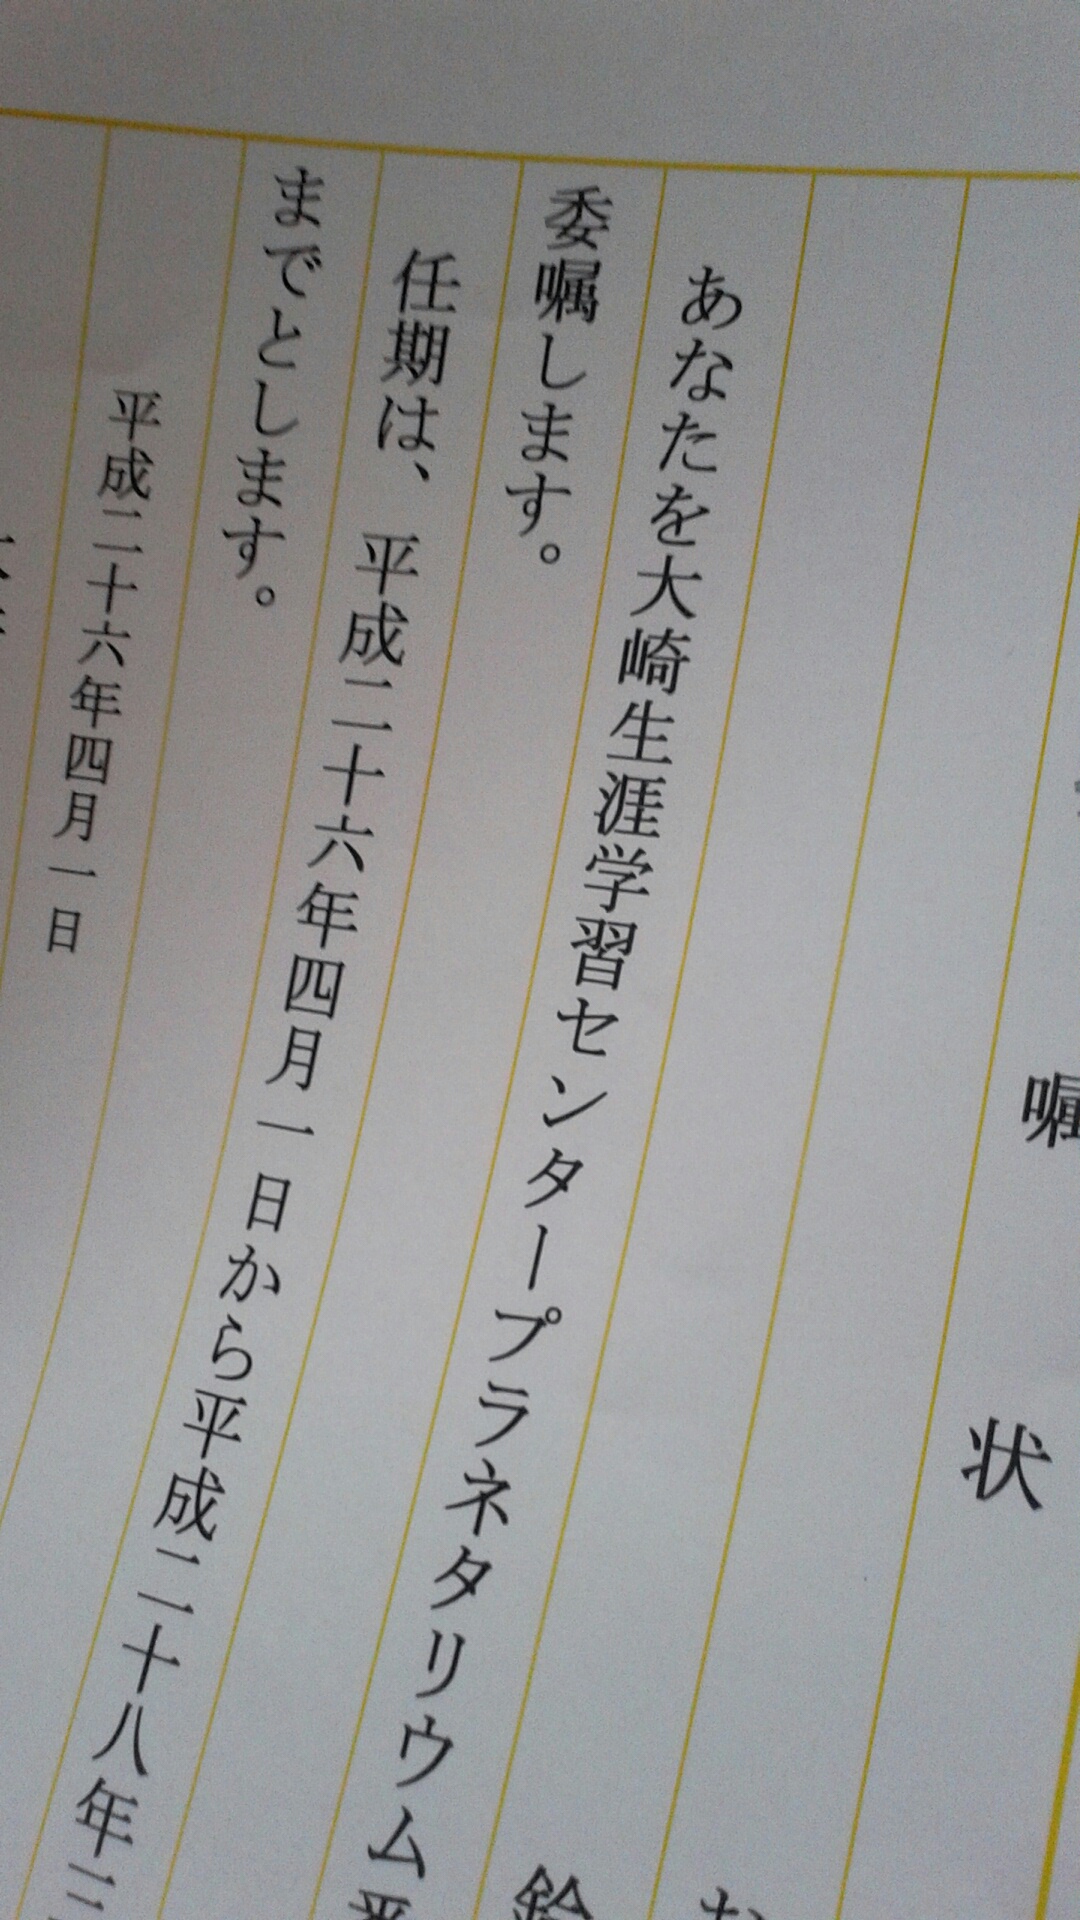 嘱状
あなたを大崎生涯学習センタープラネタリウム
委嘱します。
任期は、平成二十六年四月一日から平成二十八年三
までとします。
平成二十六年四月一日